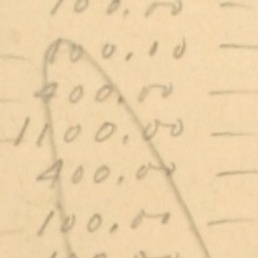 100.00
100.10
400.00
1100.00
400.00
100.00